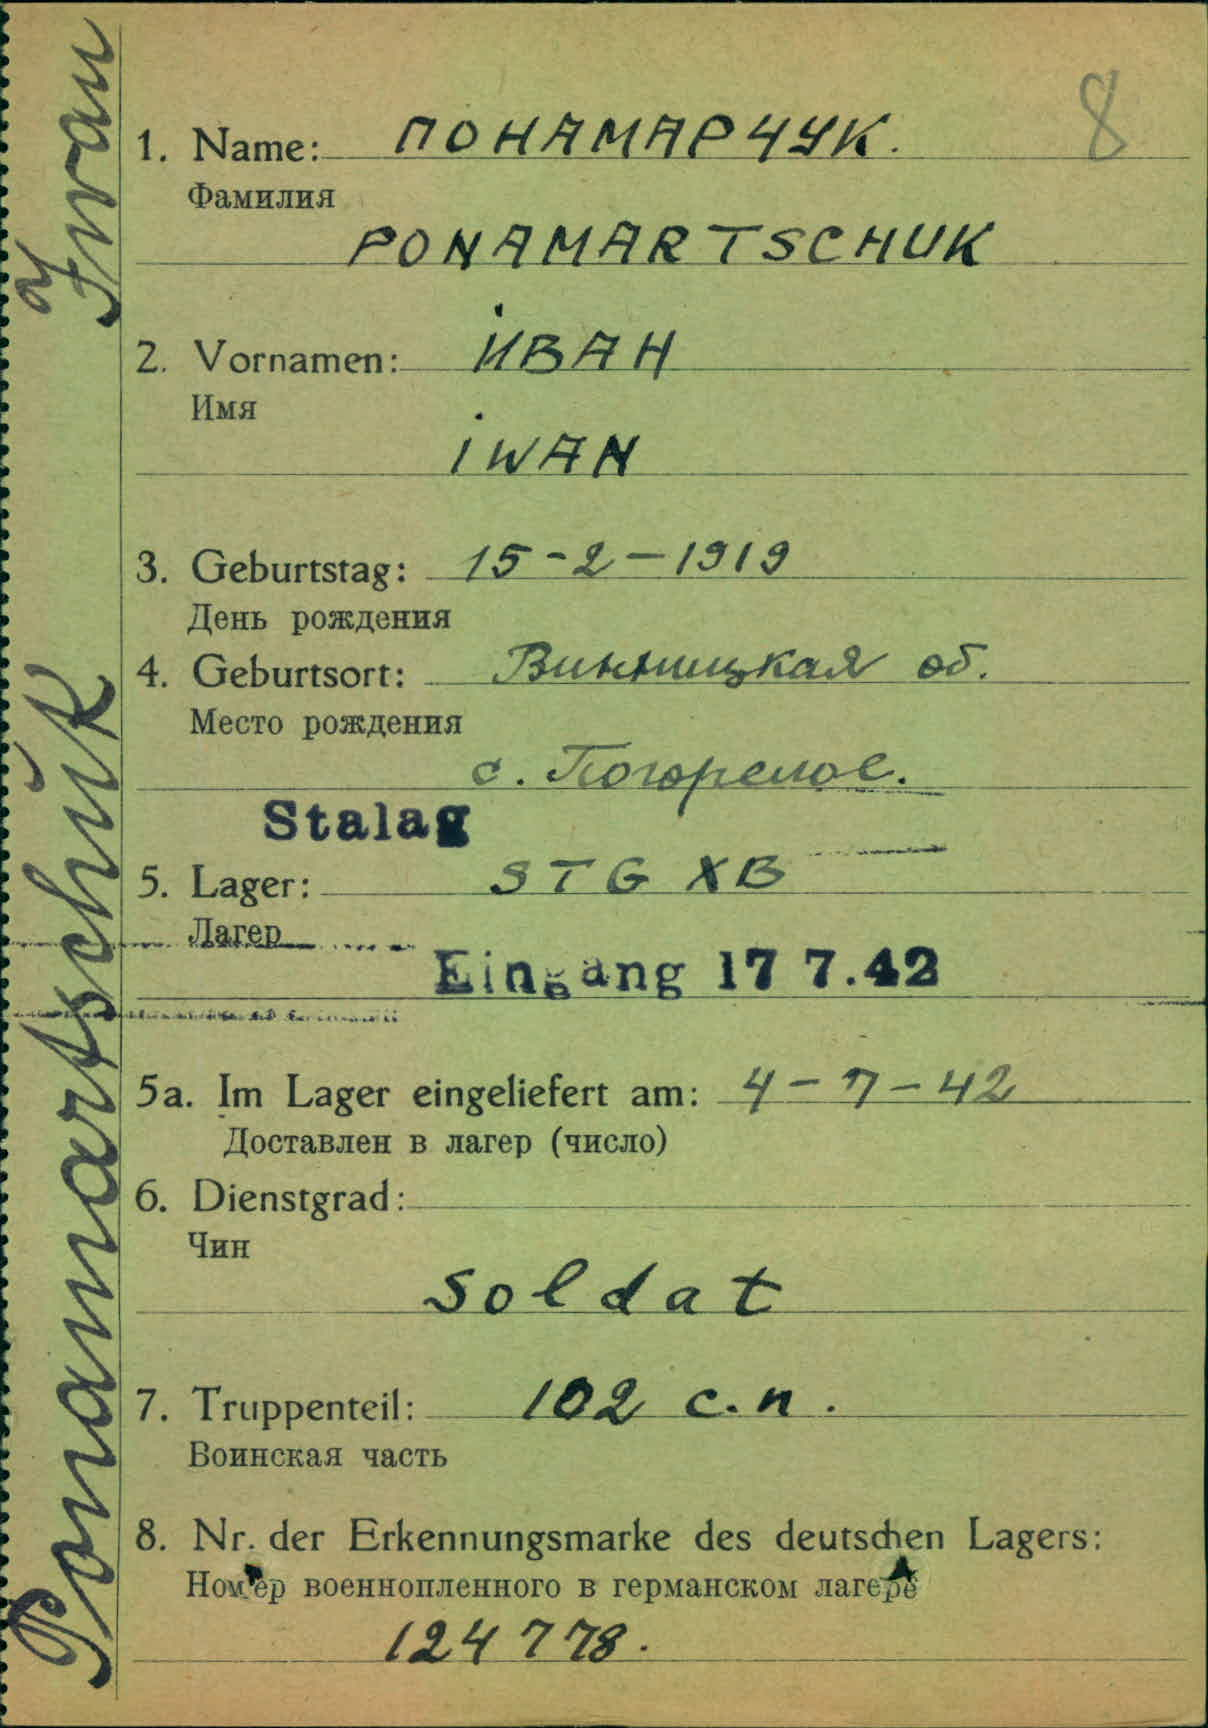 8
1. Name: ПОНАМАРЧУК.
Фамилия
PONAMARTSCHUK
2. Vornamen: ИВАН
Имя
iWAN
3. Geburtstag: 15-2-1919
День рождения
4. Geburtsort: Винницкая об.
Место рождения
с. Погорелое.
Stalag
5. Lager: STG XB
Лагер
Eingang 17 7.42
5a. Im Lager eingeliefert am: 4-7-42
Доставлен в лагер (число)
6. Dienstgrad:
Чин
Soldat
7. Truppenteil: 102 с.п.
Воинская часть
8. Nr. der Erkennungsmarke des deutschen Lagers:
Номер военнопленного в германском лагере
124778.
Ponamartschuk Iwan